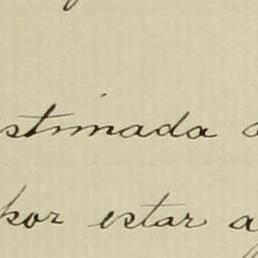 stimada
por estar a